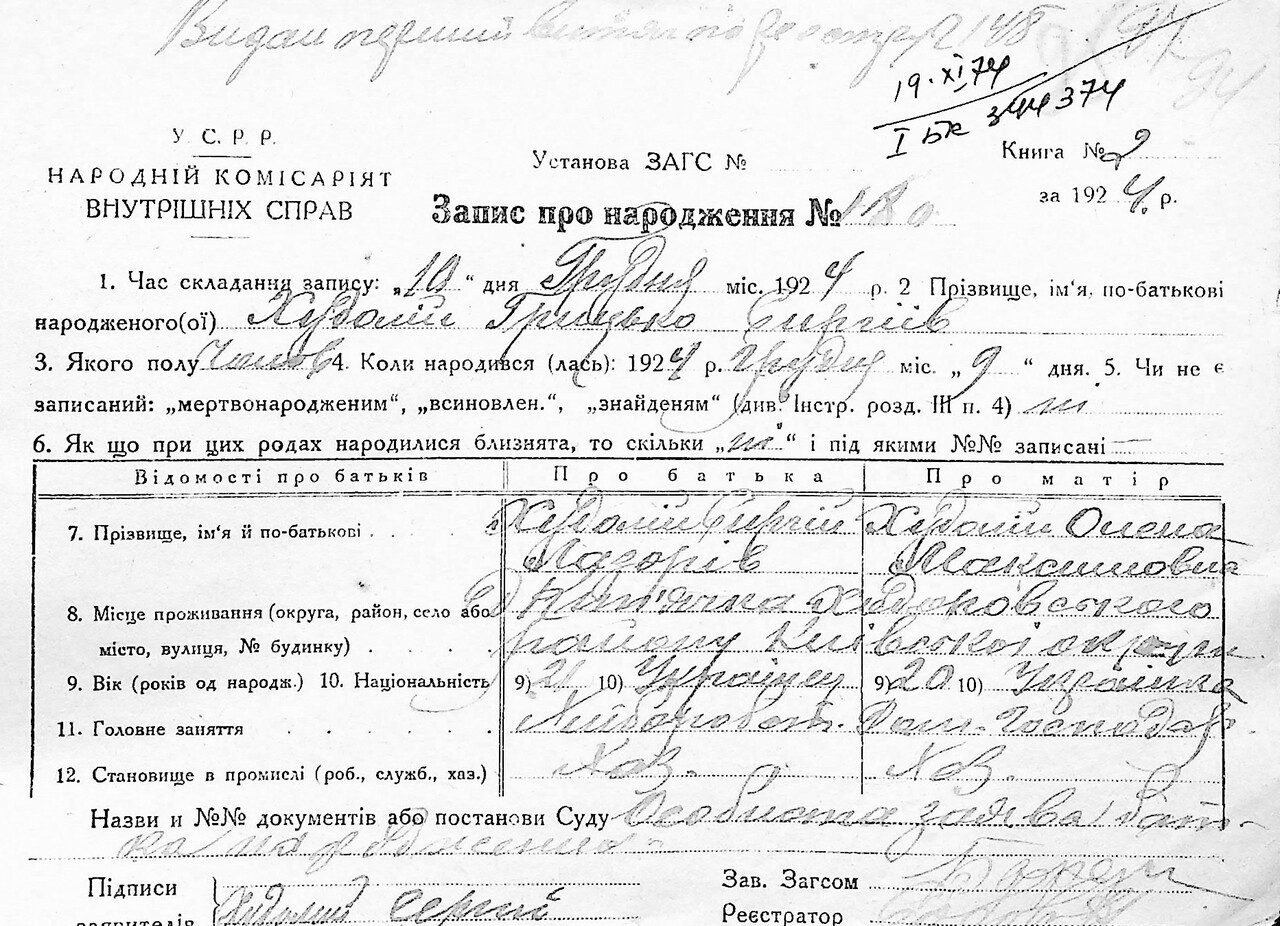 Видан перший витяг по реєстру 148
19.XI.74
І БК 344374
У. С. Р. Р.
НАРОДНІЙ КОМІСАРІЯТ
ВНУТРІШНІХ СПРАВ
Установа ЗАГС №
Книга № 2
за 1924. р.
Запис про народження № 180
1. Час складання запису: „10“ дня Грудня міс. 1924 р. 2 Прізвище, ім‘я, по-батькові
народженого(ої) Худолій Грицько Сиргіїв
3. Якого полу Чолов 4. Коли народився (лась): 1924 р. Грудня міс. „9“ дня. 5. Чи не є
записаний: „мертвонародженим“, „всиновлен.“, „знайденям“ (див. Інстр. розд. III п. 4) ні
6. Як що при цих родах народилися близнята, то скільки „ні“ і під якими №№ записані —
Відомості про батьків Про батька Про матір
7. Прізвище, ім‘я й по-батькові Худолій Сиргій Худолій Олена
Лазорів Максимовна
8. Місце проживання (округа, район, село або
місто, вулиця, № будинку) району Київської округи
9. Вік (років од народж.) 10. Національність 9) 21 10) Українец 9) 20 10) Українка
11. Головне заняття Хлібороб. Дом. Господар
12. Становище в промислі (роб., служб., хаз.) Хоз. Хоз.
Назви и №№ документів або постанови Суду Особиста заява бать-
ка народженого
Підписи
заявителів Худолий Сергій
Зав. Загсом
Реєстратор